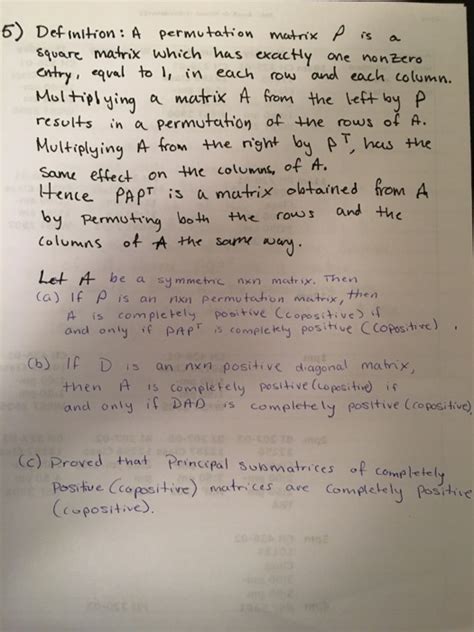 5) Definition: A permutation matrix P is a
square matrix which has exactly one nonzero
entry, equal to 1, in each row and each column.
Multiplying a matrix A from the left by P
results in a permutation of the rows of A.
Multiplying A from the right by Pᵀ, has the
same effect on the columns, of A.
Hence PAPᵀ is a matrix obtained from A
by permuting both the rows and the
columns of A the same way.
Let A be a symmetric nxn matrix. Then
(a) If P is an nxn permutation matrix, then
A is completely positive (copositive) if
and only if PAPᵀ is completely positive (copositive).
(b) If D is an nxn positive diagonal matrix,
then A is completely positive (copositive) if
and only if DAD is completely positive (copositive)
(c) Proved that Principal submatrices of completely
Positive (copositive) matrices are completely positive
(copositive).